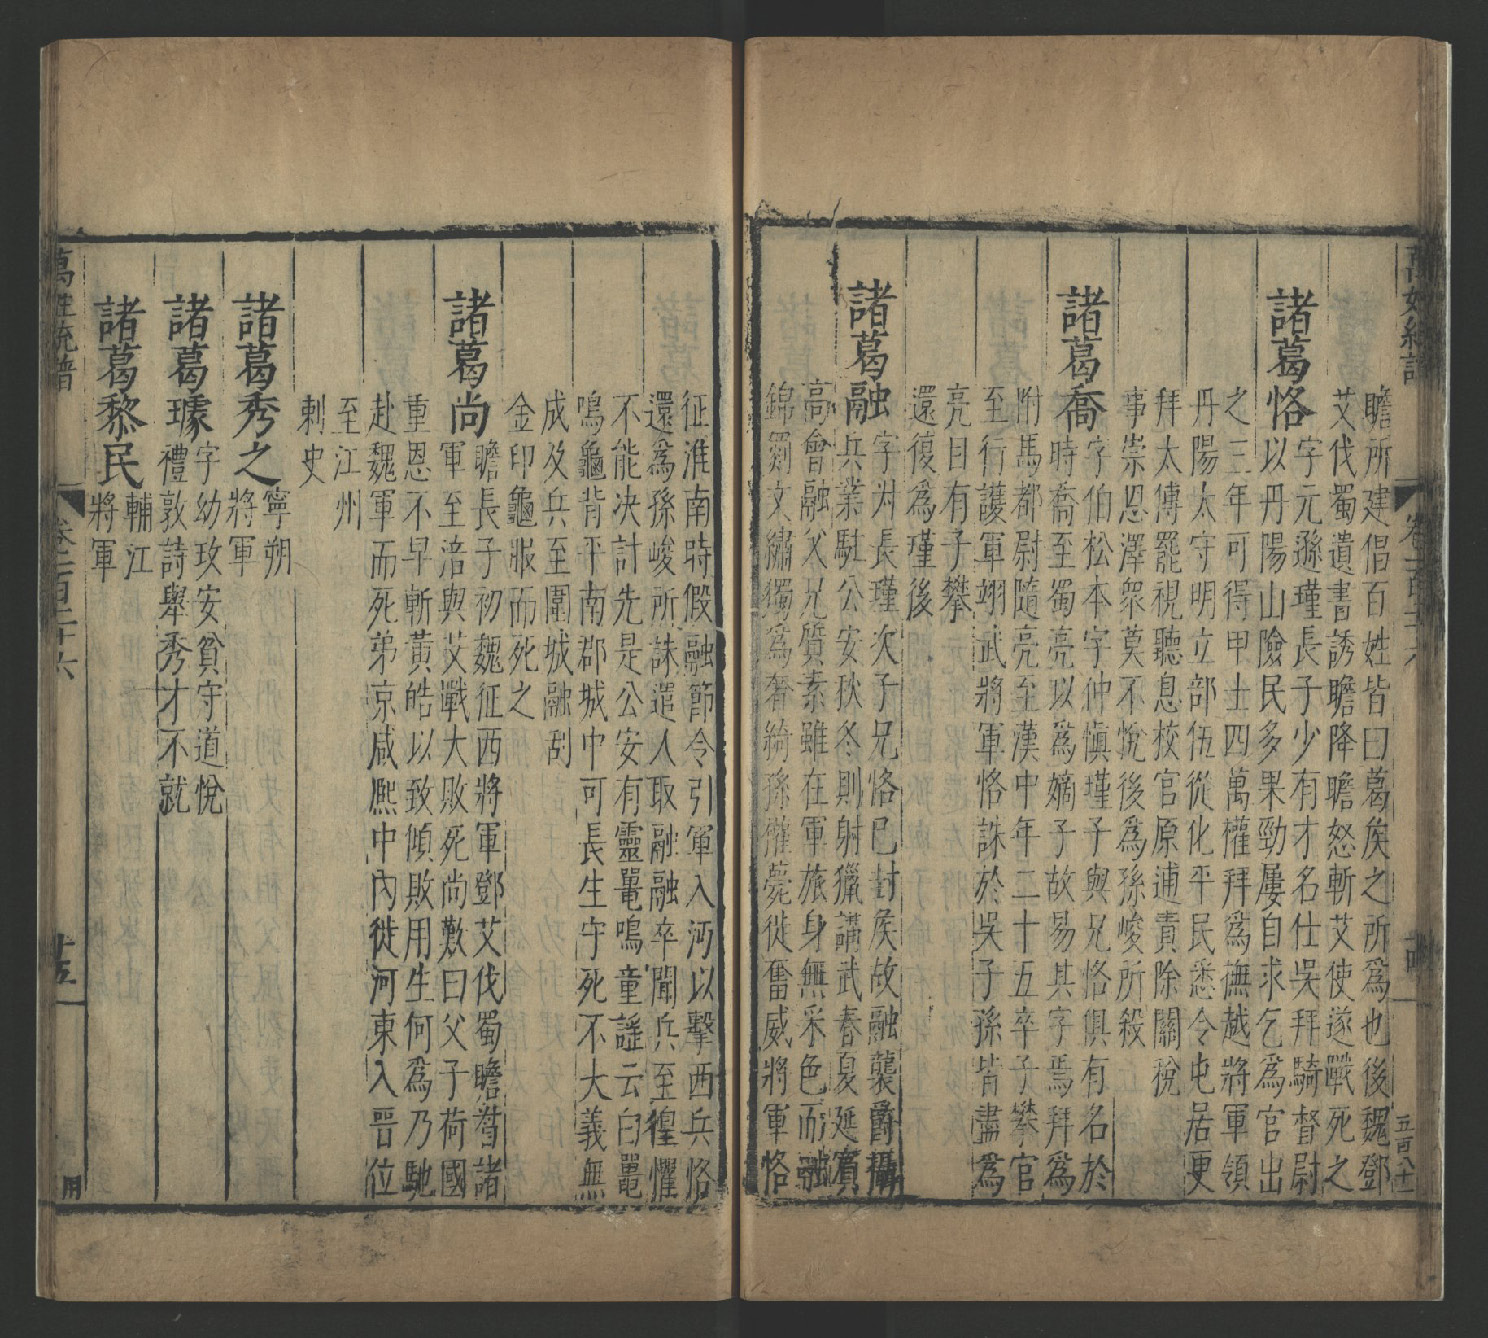 瞻所建倡百姓皆曰葛矦之所爲也後魏鄧
艾伐蜀遺書誘瞻降瞻怒斬艾使遂戰死之
諸葛恪
字元遜瑾長子少有才名仕吳拜騎督尉
以丹陽山險民多果勁屢自求乞爲官出
之三年可得甲士四萬權拜爲撫越將軍領
丹陽太守明立部伍從化平民悉令屯居更
拜太傅罷視聽息校官原逋責除關稅
事崇恩澤衆莫不悅後爲孫峻所殺
諸葛喬
字伯松本字仲愼瑾子與兄恪俱有名於
時喬至蜀亮以爲嫡子故易其字焉拜爲
駙馬都尉隨亮至漢中年二十五卒子攀官
至行護軍翊武將軍恪誅於吳子孫皆盡爲
亮日有子攀
還復爲瑾後
諸葛融
字叔長瑾次子兄恪已封矦故融襲爵攝
兵業駐公安秋冬則射獵講武春夏延賓
高會融父兄質素雖在軍旅身無采色而融
錦罽文繡獨爲奢綺孫權薨徙奮威將軍恪
征淮南時假融節令引軍入沔以擊西兵恪
還爲孫峻所誅遣人取融融卒聞兵至徨懼
不能决計先是公安有靈鼉鳴童謠云白鼉
鳴龜背平南郡城中可長生守死不大義無
成及兵至圍城融刮
金印龜服而死之
諸葛尚
瞻長子初魏征西將軍鄧艾伐蜀瞻督諸
軍至涪與艾戰大敗死尚歎曰父子荷國
重恩不早斬黃皓以致傾敗用生何爲乃馳
赴魏軍而死弟京咸熙中內徙河東入晉位
至江州
刺史
諸葛秀之
寧朔
將軍
諸葛璩
字幼玫安貧守道悅
禮敦詩舉秀才不就
諸葛黎民
輔江
將軍
萬姓統譜
卷一百二十六